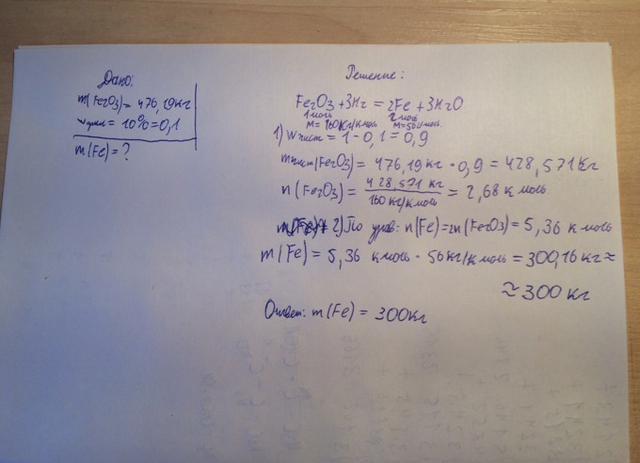 Дано:
m(Fe2O3) = 476,19кг
wприм = 10% = 0,1
m(Fe) = ?
Решение:
Fe2O3 + 3H2 = 2Fe + 3H2O
1 моль 2 моль
M = 160 кг/кмоль M = 56
1) Wчист = 1 - 0,1 = 0,9
mчист(Fe2O3) = 476,19 кг · 0,9 = 428,571 кг
n(Fe2O3) = 428,571 кг / 160 кг/кмоль = 2,68 к моль
2) По урав: n(Fe) = 2n(Fe2O3) = 5,36 к моль
m(Fe) = 5,36 к моль · 56 кг/к моль = 300,16 кг ≈
≈ 300 кг
Ответ: m(Fe) = 300кг